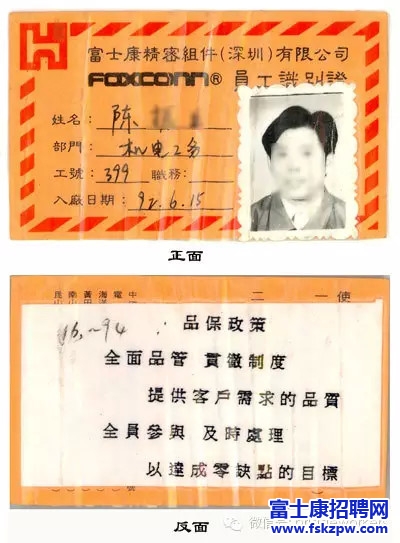 富士康精密組件(深圳)有限公司
FOXCONN® 員工識別證
姓名: 陈
部門: 机电工务
工號: 399 職務:
入廠日期: 92.6.15
正面
昆 南 黃 海 電 中
二 一 使
~94 品保政策
全面品管 貫徹制度
提供客戶需求的品質
全員參與 及時處理
以達成零缺點的目標
反面
微信号:
富士康招聘网
www.fskzpw.com